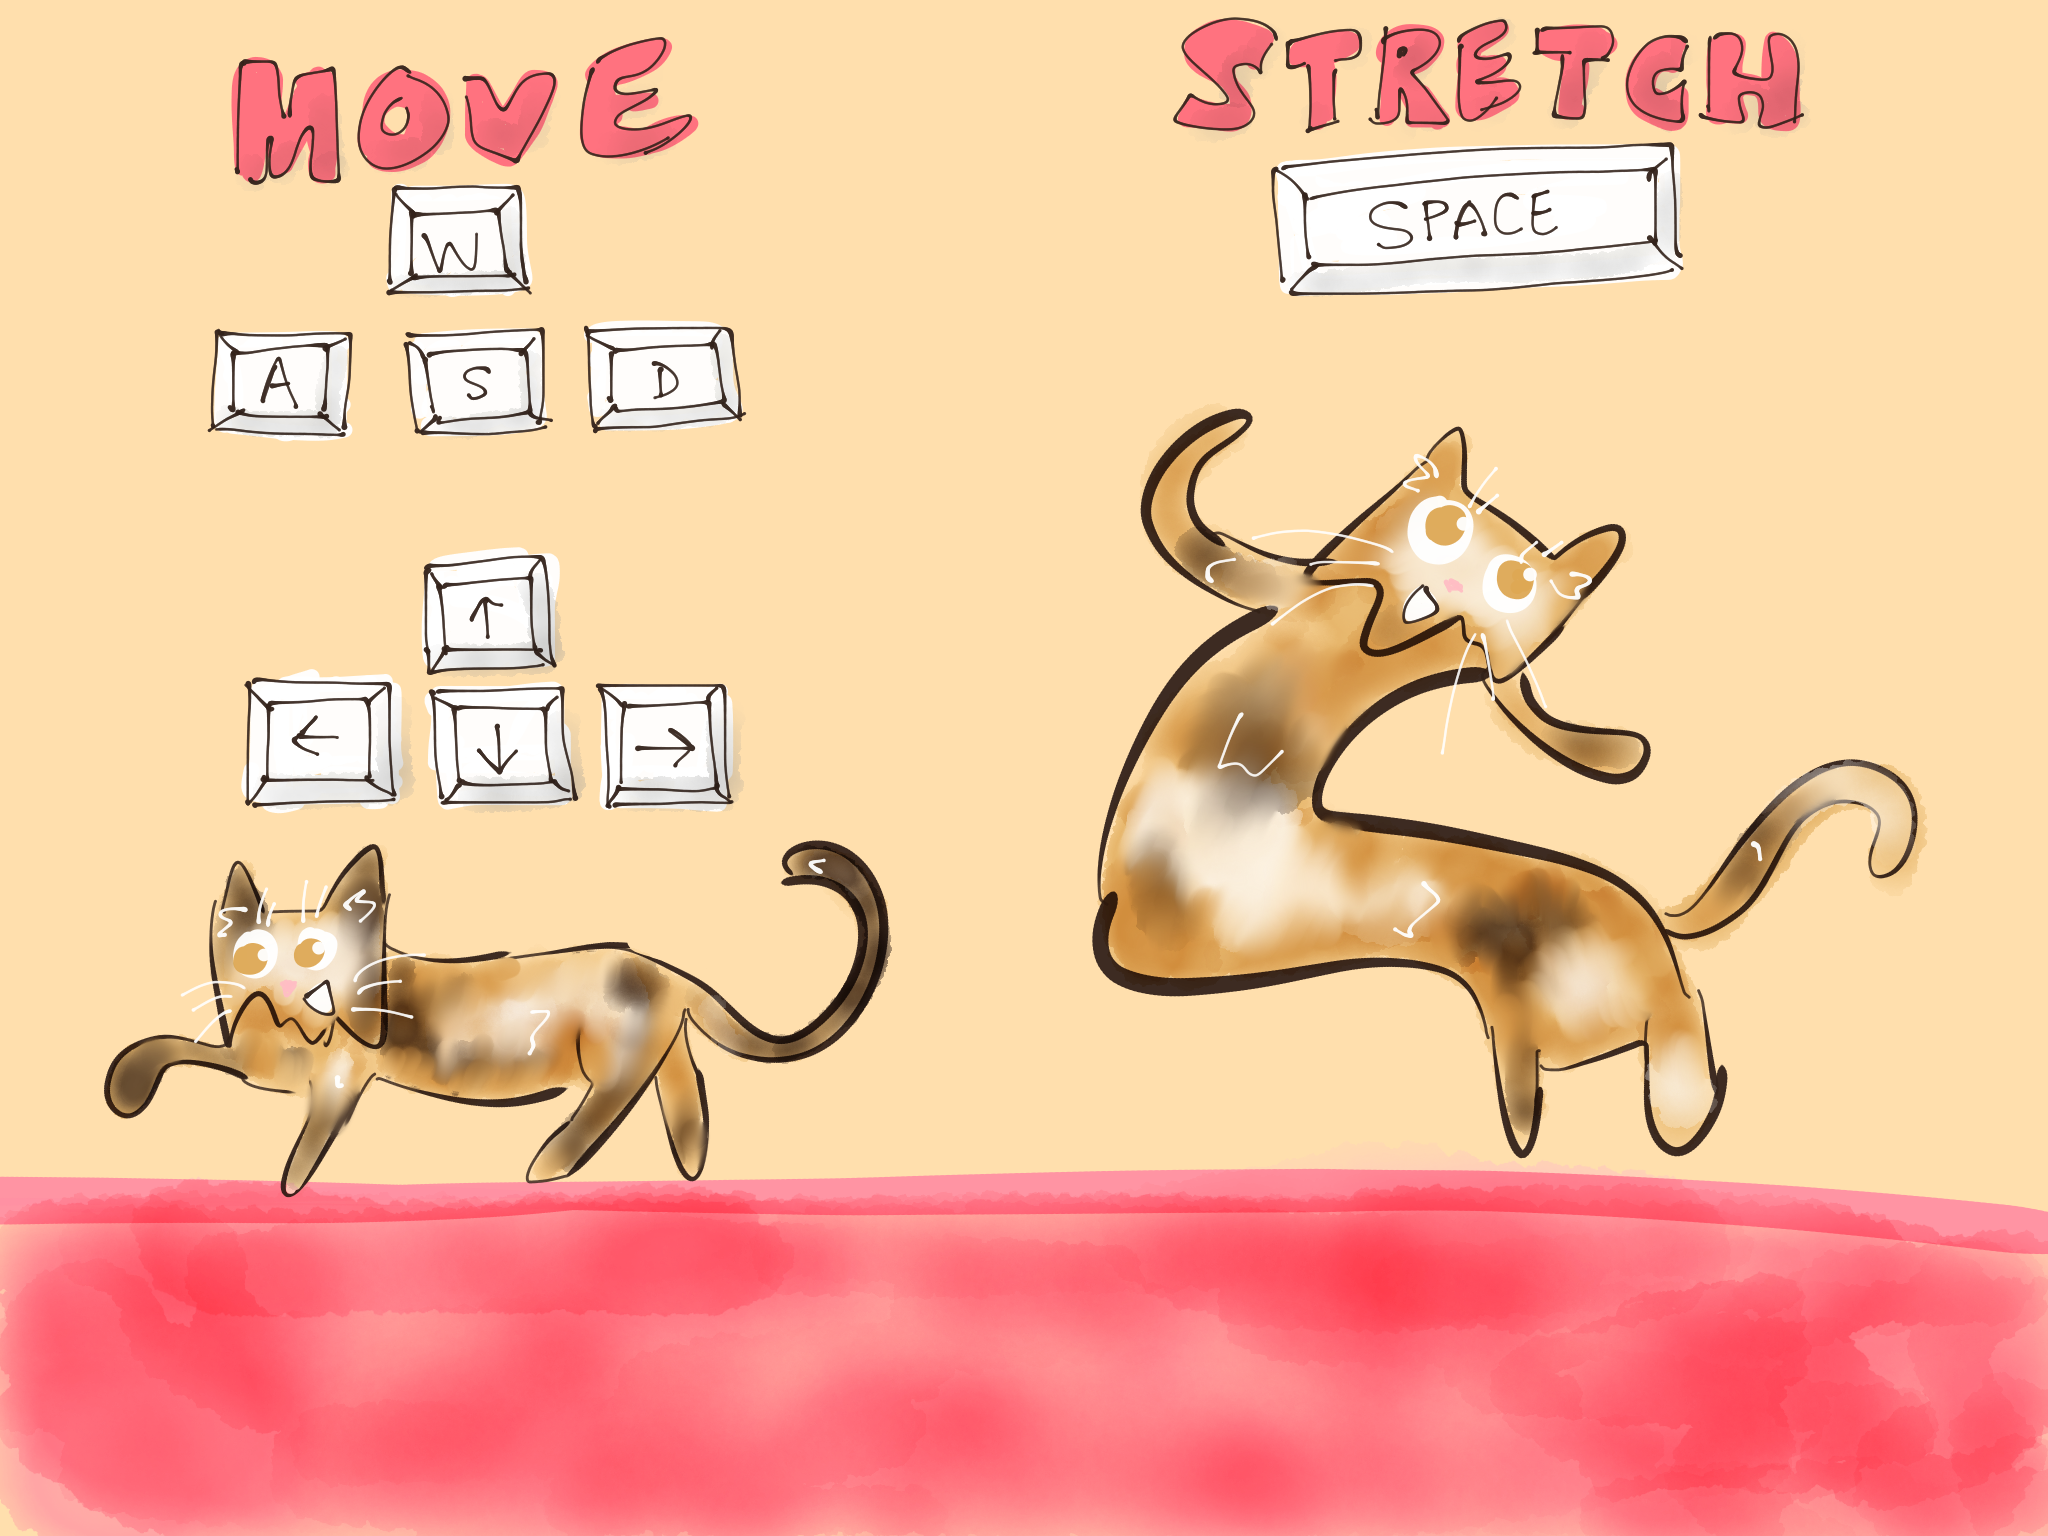 MOVE
W
A S D
↑
← ↓ →
STRETCH
SPACE